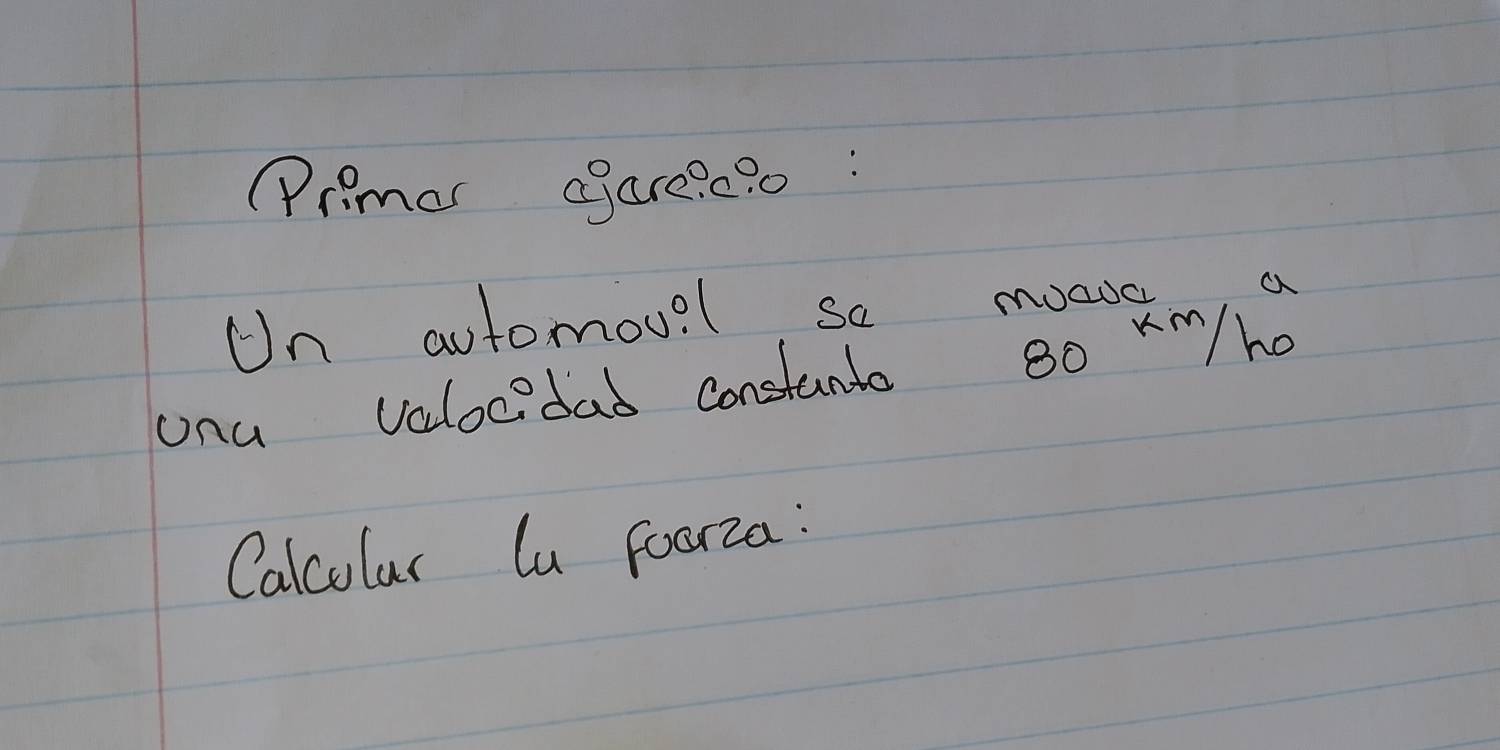 Primer ejercicio :
Un automovil se mueve a
una velocidad constante 80 km/ho
Calcular la fuerza: